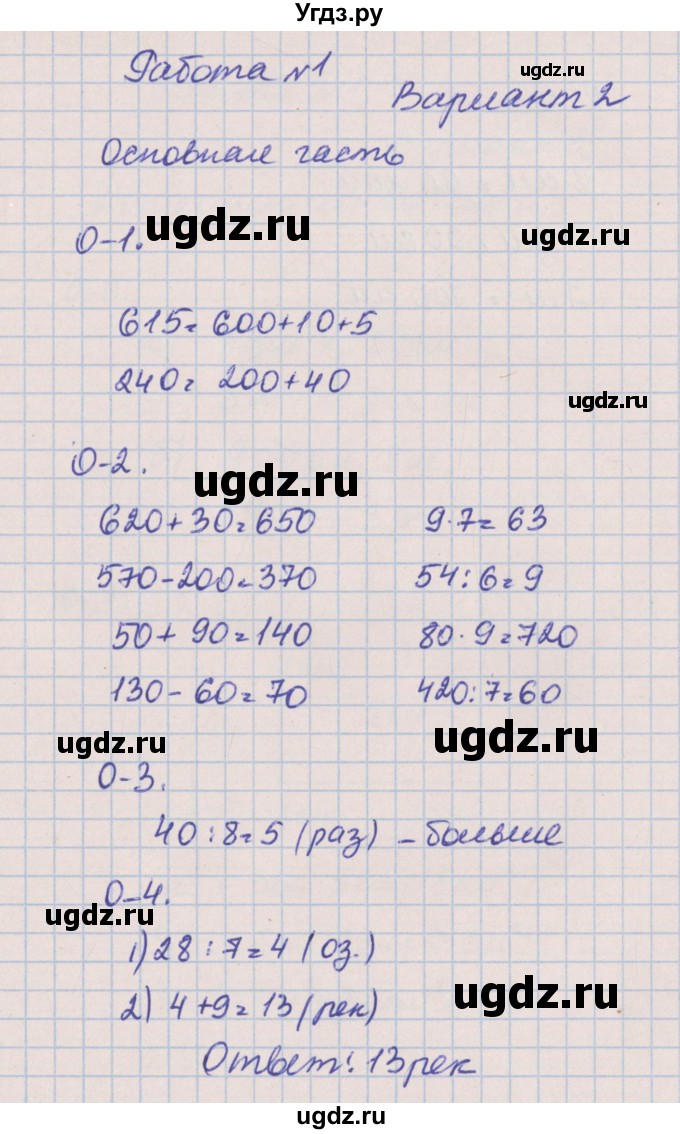 Угдз.ру
Работа №1
ugdz.ru
Вариант 2
Основная часть
О-1.
ugdz.ru
ugdz.ru
615=600+10+5
240=200+40
ugdz.ru
О-2.
ugdz.ru
620+30=650 9·7=63
570-200=370 54:6=9
50+90=140 80·9=720
130-60=70 420:7=60
ugdz.ru
ugdz.ru
О-3.
40:8=5 (раз) - больше
О-4.
ugdz.ru
1) 28:7=4 (оз.)
ugdz.ru
2) 4+9=13 (рек)
Ответ: 13 рек
ugdz.ru